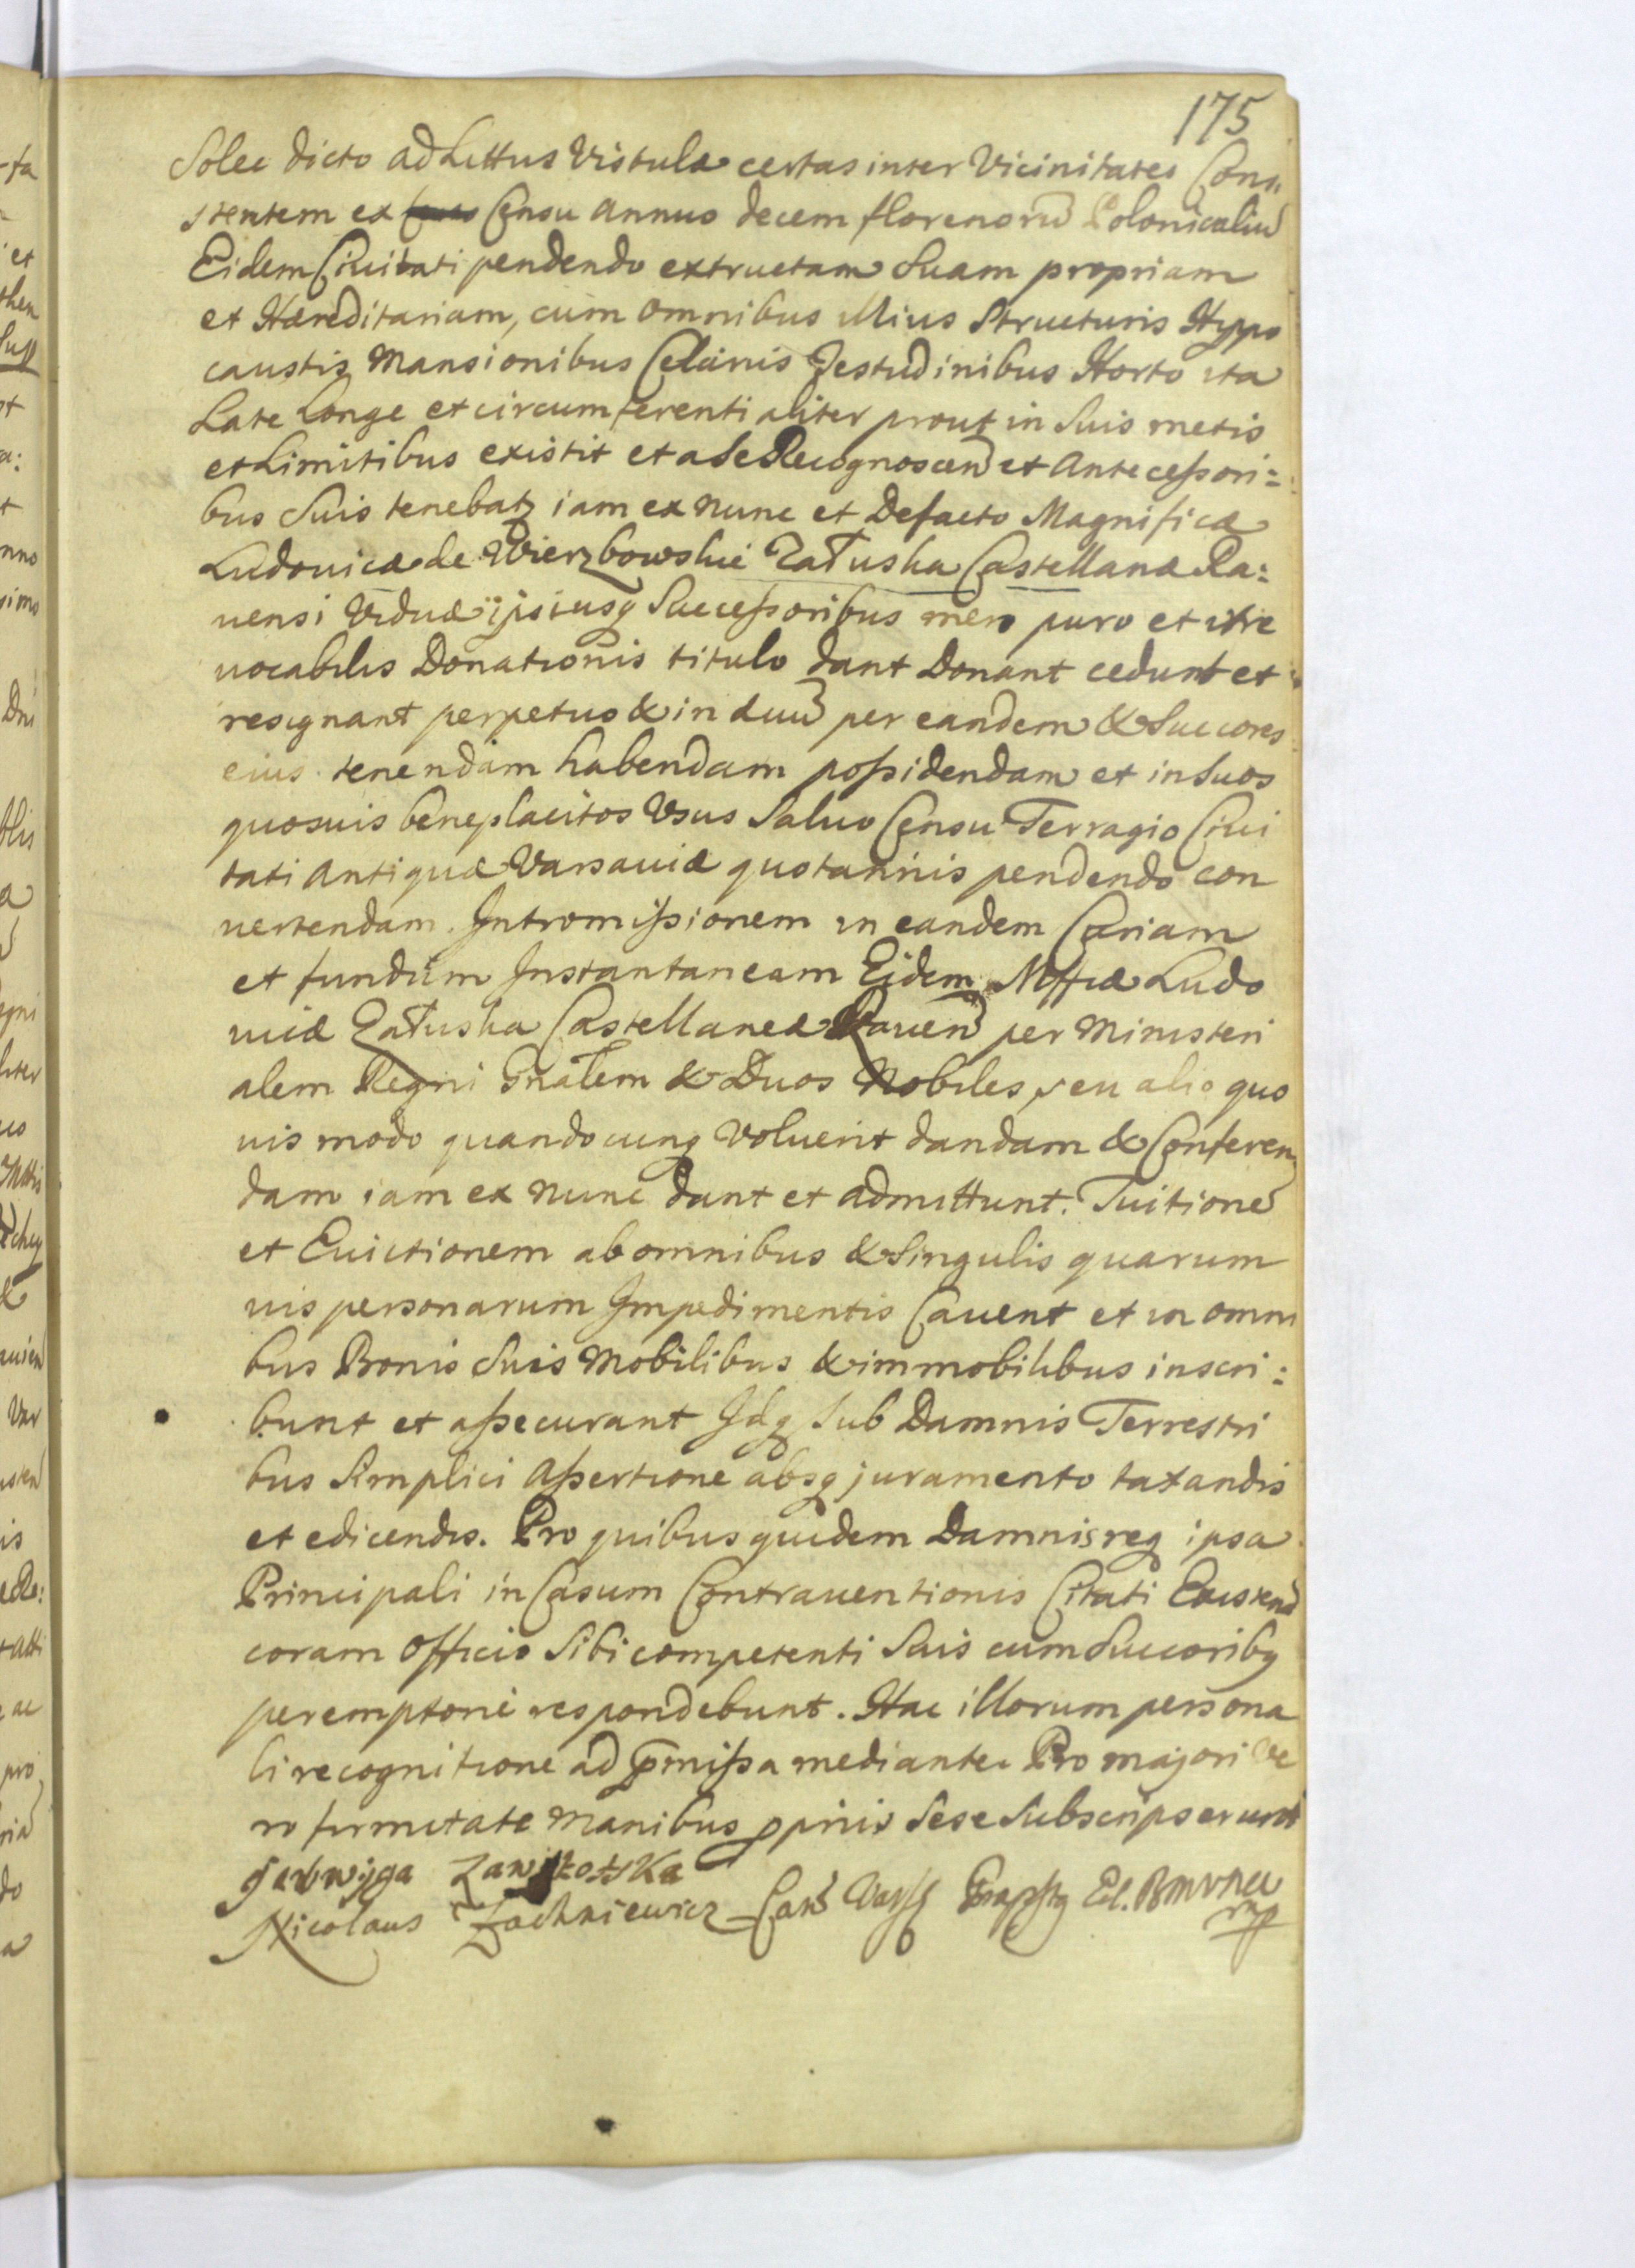 175
Solec dicto ad Littus Vistulæ certas inter Vicinitates Consi
stentem ex Censu Annuo decem florenorũ Polonicaliũ
Eidem Civitati pendendo extructam Suam propriam
et Hæreditariam, cum omnibus illius Structuris Hypo
caustis Mansionibus Cellariis Testudinibus Horto ita
Late Longe et circumferentialiter prout in Suis metis
et Limitibus existit et a Se Recognoscen et Antecessori=
bus Suis tenebatz iam ex nunc et Defacto Magnificæ
Ludovicæ de Wierzbowskie Załuska Castellanæ Ra=
uensi Viduæ ipsiusq Successoribus mero puro et irre
uocabilis Donationis titulo dant Donant cedunt et
resignant perpetuo & in æuũ per eandem & Succores
eius tenendam habendam possidendam et in Suos
quosuis beneplacitos Vsus Saluo Censu Terragio Ciui
tati Antiquæ Varsauiæ quotannis pendendo con
uertendam. Intromissionem in eandem Curiam
et fundum Instantaneam Eidem Mfficæ Ludo
uicæ Załuska Castellaneæ Rauen per Ministeri
alem Regni Gnalem & Duos Nobiles, seu alio quo
uis modo quandocunq Voluerit dandam & Conferen
dam iam ex nunc dant et admittunt. Tuitione
et Euictionem ab omnibus & Singulis quarum
uis personarum Impedimentis Cauent et in omni
bus Bonis Suis Mobilibus & immobilibus inscri=
bunt et assecurant Idq Sub Damnis Terrestri
bus Simplici Assertione absq juramento taxandis
et edicendis. Pro quibus quidem Damnis req ipsa
Principali in Casum Contrauentionis Citati Existen
coram Officio Sibi competenti Suis cum Succoribq
peremptorie respondebunt. Hac illorum persona
li recognitione ad pmissa mediante. Pro majori ve
ro firmitate Manibus ppriis Sese Subscripserunt
Jadwyga
Nicolaus Zachniewicz Can Vars
mp